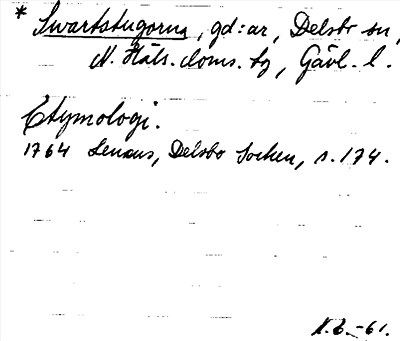 * Swartstugorna, gd:ar, Delsbo sn,
N. Häls. doms. tg, Gävl. l.
Etymologi.
1764 Lenæus, Delsbo Socken, s. 174.
N.B.-61.